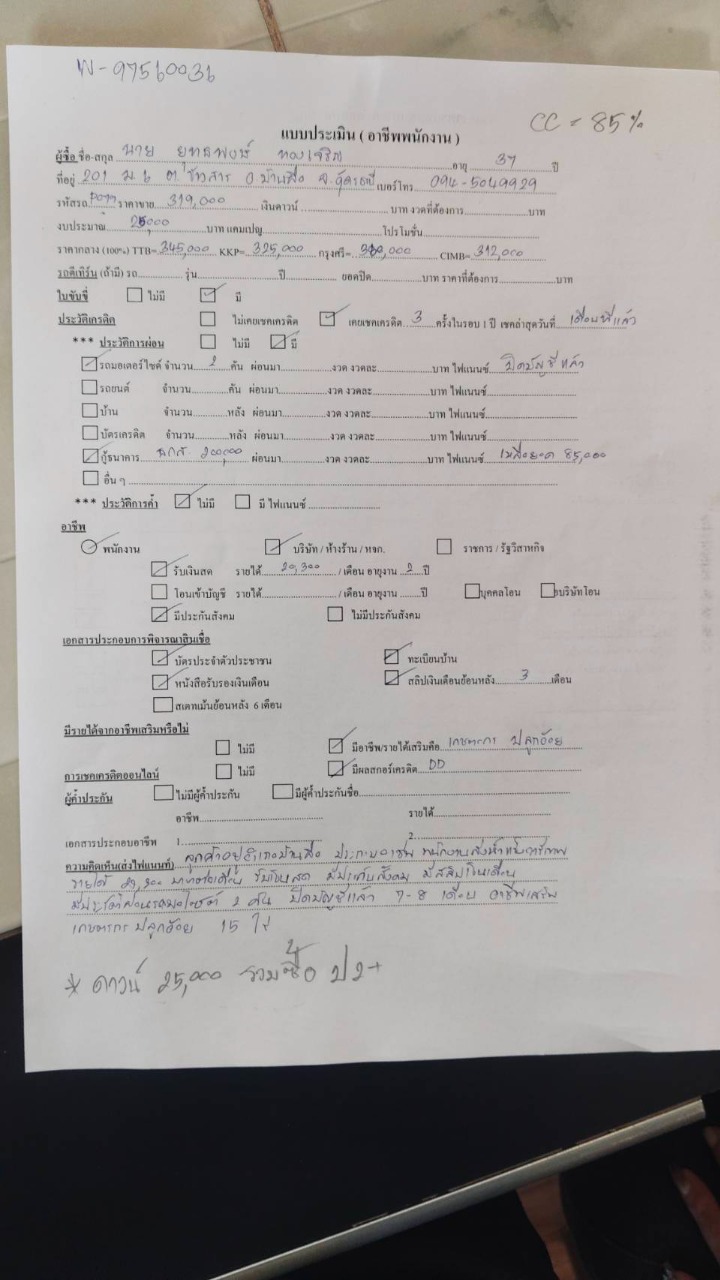 N-97560036
CC = 85%
แบบประเมิน ( อาชีพพนักงาน )
ผู้ซื้อ ชื่อ-สกุล นาย ยุทธพงษ์ ทองเจริญ อายุ 37 ปี
ที่อยู่ 201 ม.6 ต. อ.บ้านผือ จ.อุดรธานี เบอร์โทร 094-5049929
รหัสรถ ราคาขาย 319,000 เงินดาวน์ บาท งวดที่ต้องการ บาท
งบประมาณ 25,000 บาท แคมเปญ โปรโมชั่น
ราคากลาง (100%) TTB= 345,000 KKP= 325,000 กรุงศรี= 310,000 CIMB= 312,000
รถตีเทิร์น (ถ้ามี) รถ รุ่น ปี ยอดปิด บาท ราคาที่ต้องการ บาท
ใบขับขี่ ไม่มี มี
ประวัติเครดิต ไม่เคยเชคเครดิต เคยเชคเครดิต 3 ครั้งในรอบ 1 ปี เชคล่าสุดวันที่ เดือนที่แล้ว
*** ประวัติการผ่อน ไม่มี มี
รถมอเตอร์ไซค์ จำนวน 2 คัน ผ่อนมา งวด งวดละ บาท ไฟแนนซ์ ปิดบัญชีแล้ว
รถยนต์ จำนวน คัน ผ่อนมา งวด งวดละ บาท ไฟแนนซ์
บ้าน จำนวน หลัง ผ่อนมา งวด งวดละ บาท ไฟแนนซ์
บัตรเครดิต จำนวน หลัง ผ่อนมา งวด งวดละ บาท ไฟแนนซ์
กู้ธนาคาร ธกส 200,000 ผ่อนมา งวด งวดละ บาท ไฟแนนซ์ เหลือยอด 85,000
อื่น ๆ
*** ประวัติการค้ำ ไม่มี มี ไฟแนนซ์
อาชีพ
พนักงาน บริษัท / ห้างร้าน / หจก. ราชการ / รัฐวิสาหกิจ
รับเงินสด รายได้ 20,300 / เดือน อายุงาน 2 ปี
โอนเข้าบัญชี รายได้ / เดือน อายุงาน ปี บุคคลโอน บริษัทโอน
มีประกันสังคม ไม่มีประกันสังคม
เอกสารประกอบการพิจารณาสินเชื่อ
บัตรประจำตัวประชาชน ทะเบียนบ้าน
หนังสือรับรองเงินเดือน สลิปเงินเดือนย้อนหลัง 3 เดือน
สเตทเม้นย้อนหลัง 6 เดือน
มีรายได้จากอาชีพเสริมหรือไม่
ไม่มี มีอาชีพ/รายได้เสริมคือ เกษตรกร ปลูกอ้อย
การเชคเครดิตออนไลน์ ไม่มี มีผลสกอร์เครดิต DD
ผู้ค้ำประกัน ไม่มีผู้ค้ำประกัน มีผู้ค้ำประกันชื่อ
อาชีพ รายได้
เอกสารประกอบอาชีพ 1. 2.
ความคิดเห็น(ส่งไฟแนนท์) ลูกค้าอยู่อำเภอบ้านผือ ประกอบอาชีพ พนักงาน
รายได้ บาทต่อเดือน รับเงินสด มีประกันสังคม มีสลิปเงินเดือน
มีประวัติ 2 คัน ปิดบัญชีแล้ว 7-8 เดือน อาชีพเสริม
เกษตรกร ปลูกอ้อย 15 ไร่
* ดาวน์ 25,000 รวมซื้อ ป2+